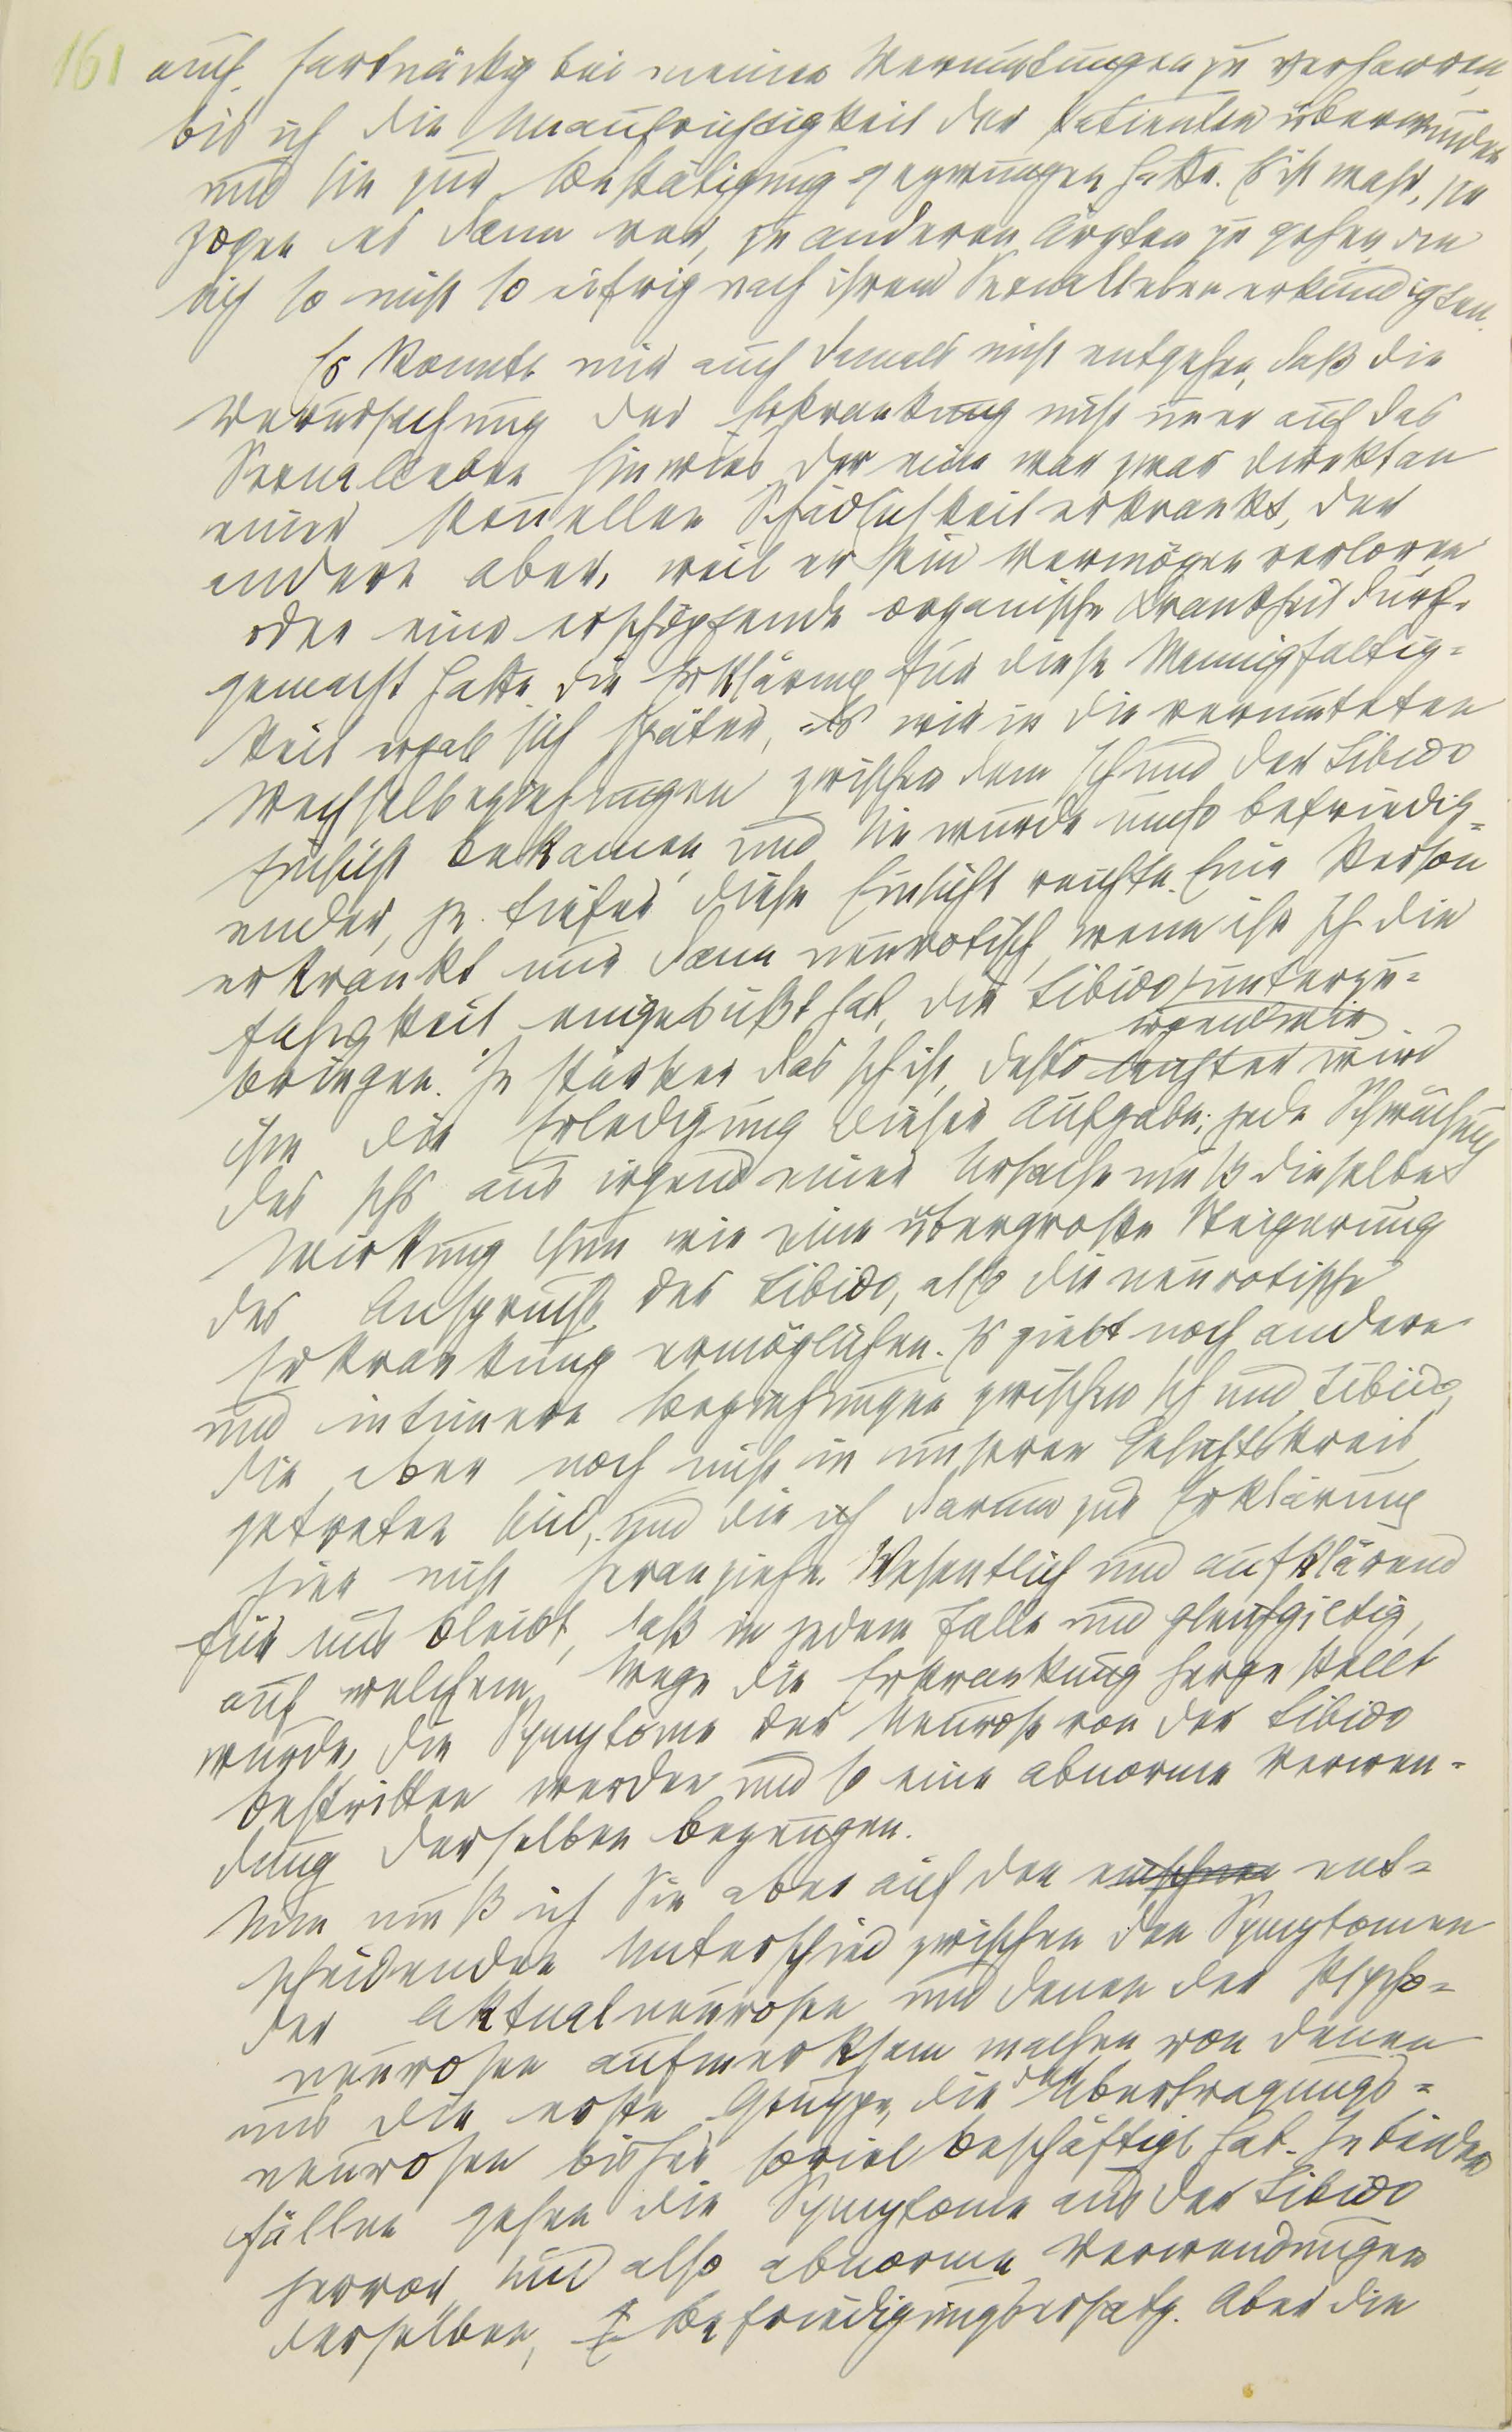 161 auch hartnäckig bei meinen Vermutungen zu verharren,
bis ich die Unaufrichtigkeit der Patienten überwunden
und sie zur Bestätigung gezwungen hatte. Es ist wahr, sie
zogen es dann vor, zu anderen Ärzten zu gehen, die
sich so nicht so eifrig nach ihrem Sexualleben erkundigten.
Es konnte mir auch damals nicht entgehen, daß die
Verursachung der Erkrankung nicht immer auf das
Sexualleben hinwies, der eine war zwar direkt an
einer sexuellen Schädlichkeit erkrankt, der
andere aber, weil er sein Vermögen verloren
oder eine erschöpfende organische Krankheit durch-
gemacht hatte. Die Erklärung für diese Mannigfaltig-
keit ergab sich später, als wir in die vermuteten
Wechselbeziehungen zwischen dem Ich und der Libido
Einsicht bekamen, und sie wurde umso befriedig-
ender, je tiefer diese Einsicht reichte. Eine Person
erkrankt nur dann neurotisch, wenn ihr Ich die
Fähigkeit eingebüßt hat, die Libido irgendwie unterzu-
bringen. Je stärker das Ich ist, desto leichter wird
ihm die Erledigung dieser Aufgabe; jede Schwächung
des Ichs aus irgend einer Ursache muß dieselbe
Wirkung thun wie eine übergroße Steigerung
des Anspruchs der Libido, also die neurotische
Erkrankung ermöglichen. Es giebt noch andere
und intimere Beziehungen zwischen Ich und Libido,
die aber noch nicht in unseren Gesichtskreis
getreten sind, und die ich darum zur Erklärung
hier nicht heranziehe. Wesentlich und aufklärend
für uns bleibt, daß in jedem Falle und gleichgiltig,
auf welchem Wege die Erkrankung hergestellt
wurde, die Symptome der Neurose von der Libido
bestritten werden und so eine abnorme Verwen-
dung derselben bezeugen.
Nun muß ich Sie aber auf den ent-
scheidenden Unterschied zwischen den Symptomen
der Aktualneurosen und denen der Psycho-
neurosen aufmerksam machen von denen
uns die erste Gruppe, die der Übertragungs-
neurosen bisher soviel beschäftigt hat. In beiden
Fällen gehen die Symptome aus der Libido
hervor, sind also abnorme Verwendungen
derselben, Befriedigungsersatz. Aber die